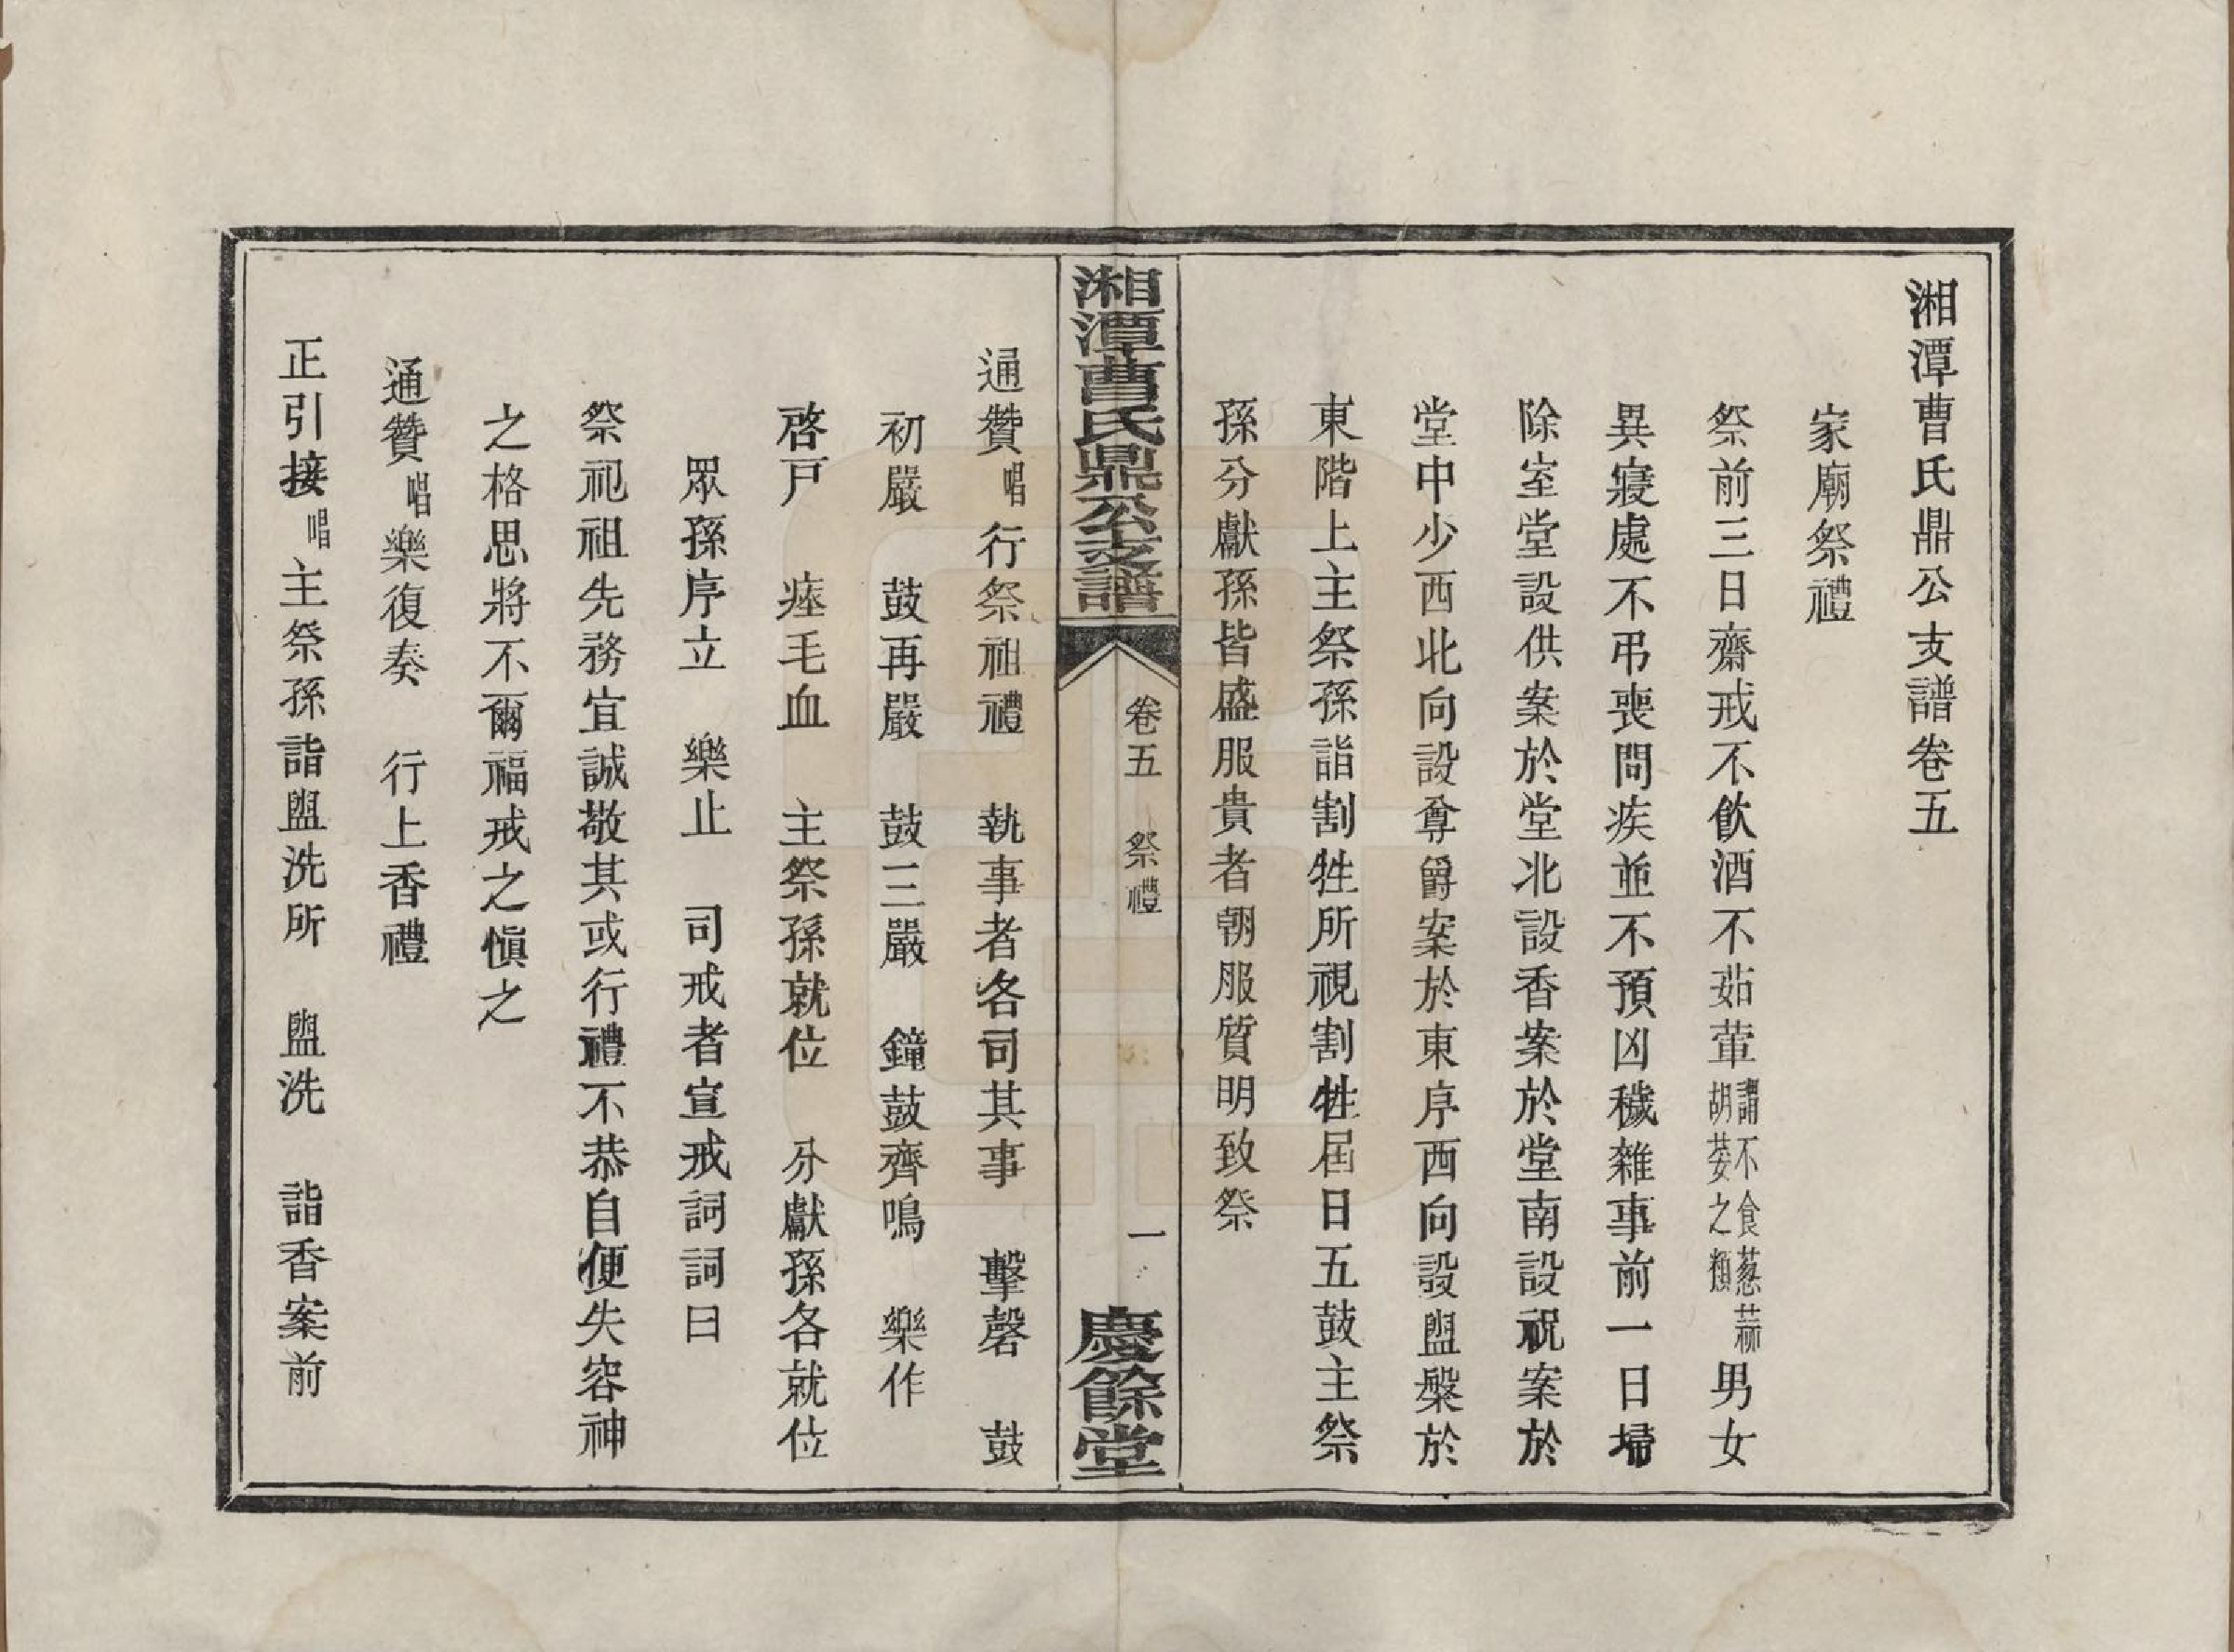 湘潭曹氏鼎公支譜卷五
家廟祭禮
祭前三日齋戒不飲酒不茹葷謂不食葱蒜胡荽之類男女
異寢處不弔喪問疾並不預凶穢雜事前一日埽
除室堂設供案於堂北設香案於堂南設祝案於
堂中少西北向設尊爵案於東序西向設盥槃於
東階上主祭孫詣割牲所視割牲屆日五鼓主祭
孫分獻孫皆盛服貴者朝服質明致祭
湘潭曹氏鼎公支譜 卷五 祭禮 一 慶餘堂
通贊唱行祭祖禮 執事者各司其事 擊磬 鼓
初嚴 鼓再嚴 鼓三嚴 鐘鼓齊鳴 樂作
啓戸 瘞毛血 主祭孫就位 分獻孫各就位
眾孫序立 樂止 司戒者宣戒詞詞曰
祭祀祖先務宜誠敬其或行禮不恭自便失容神
之格思將不爾福戒之愼之
通贊唱樂復奏 行上香禮
正引接唱主祭孫詣盥洗所 盥洗 詣香案前